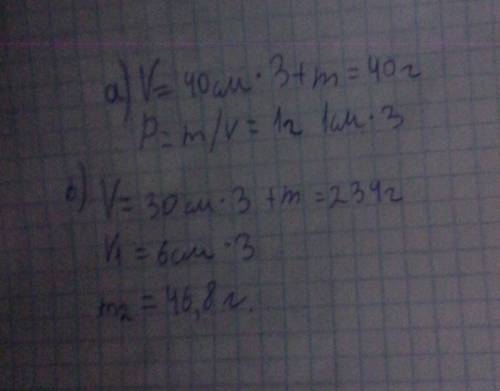 а) V = 40см · 3 + m = 40г
P = m/v = 1г 1см · 3
б) V = 30см · 3 + m = 234г
V₁ = 6см · 3
m₂ = 46,8 г.